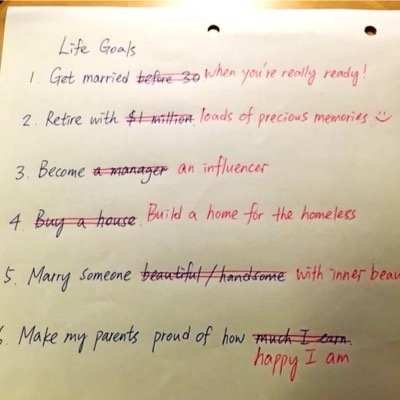 Life Goals
1. Get married before 30 when you're really ready!
2. Retire with $1 million loads of precious memories
3. Become a manager an influencer
4. Buy a house. Build a home for the homeless
5. Marry someone beautiful/handsome with inner beau
6. Make my parents proud of how much I earn.
happy I am